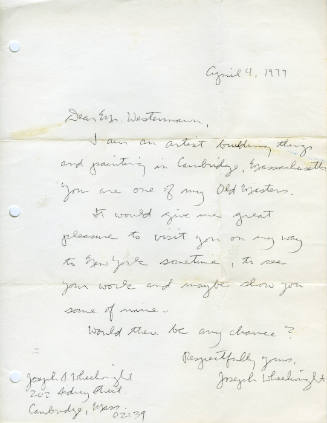 April 4, 1977
Dear Mr. Westermann,
I am an artist building things
and painting in Cambridge, Massachusetts
You are one of my Old Masters.
It would give me great
pleasure to visit you on my way
to New York sometime, to see
your work and maybe show you
some of mine.
Would there be any chance?
Respectfully yours,
Joseph Wheelwright
Joseph S Wheelwright
Street
Cambridge, Mass.
02139